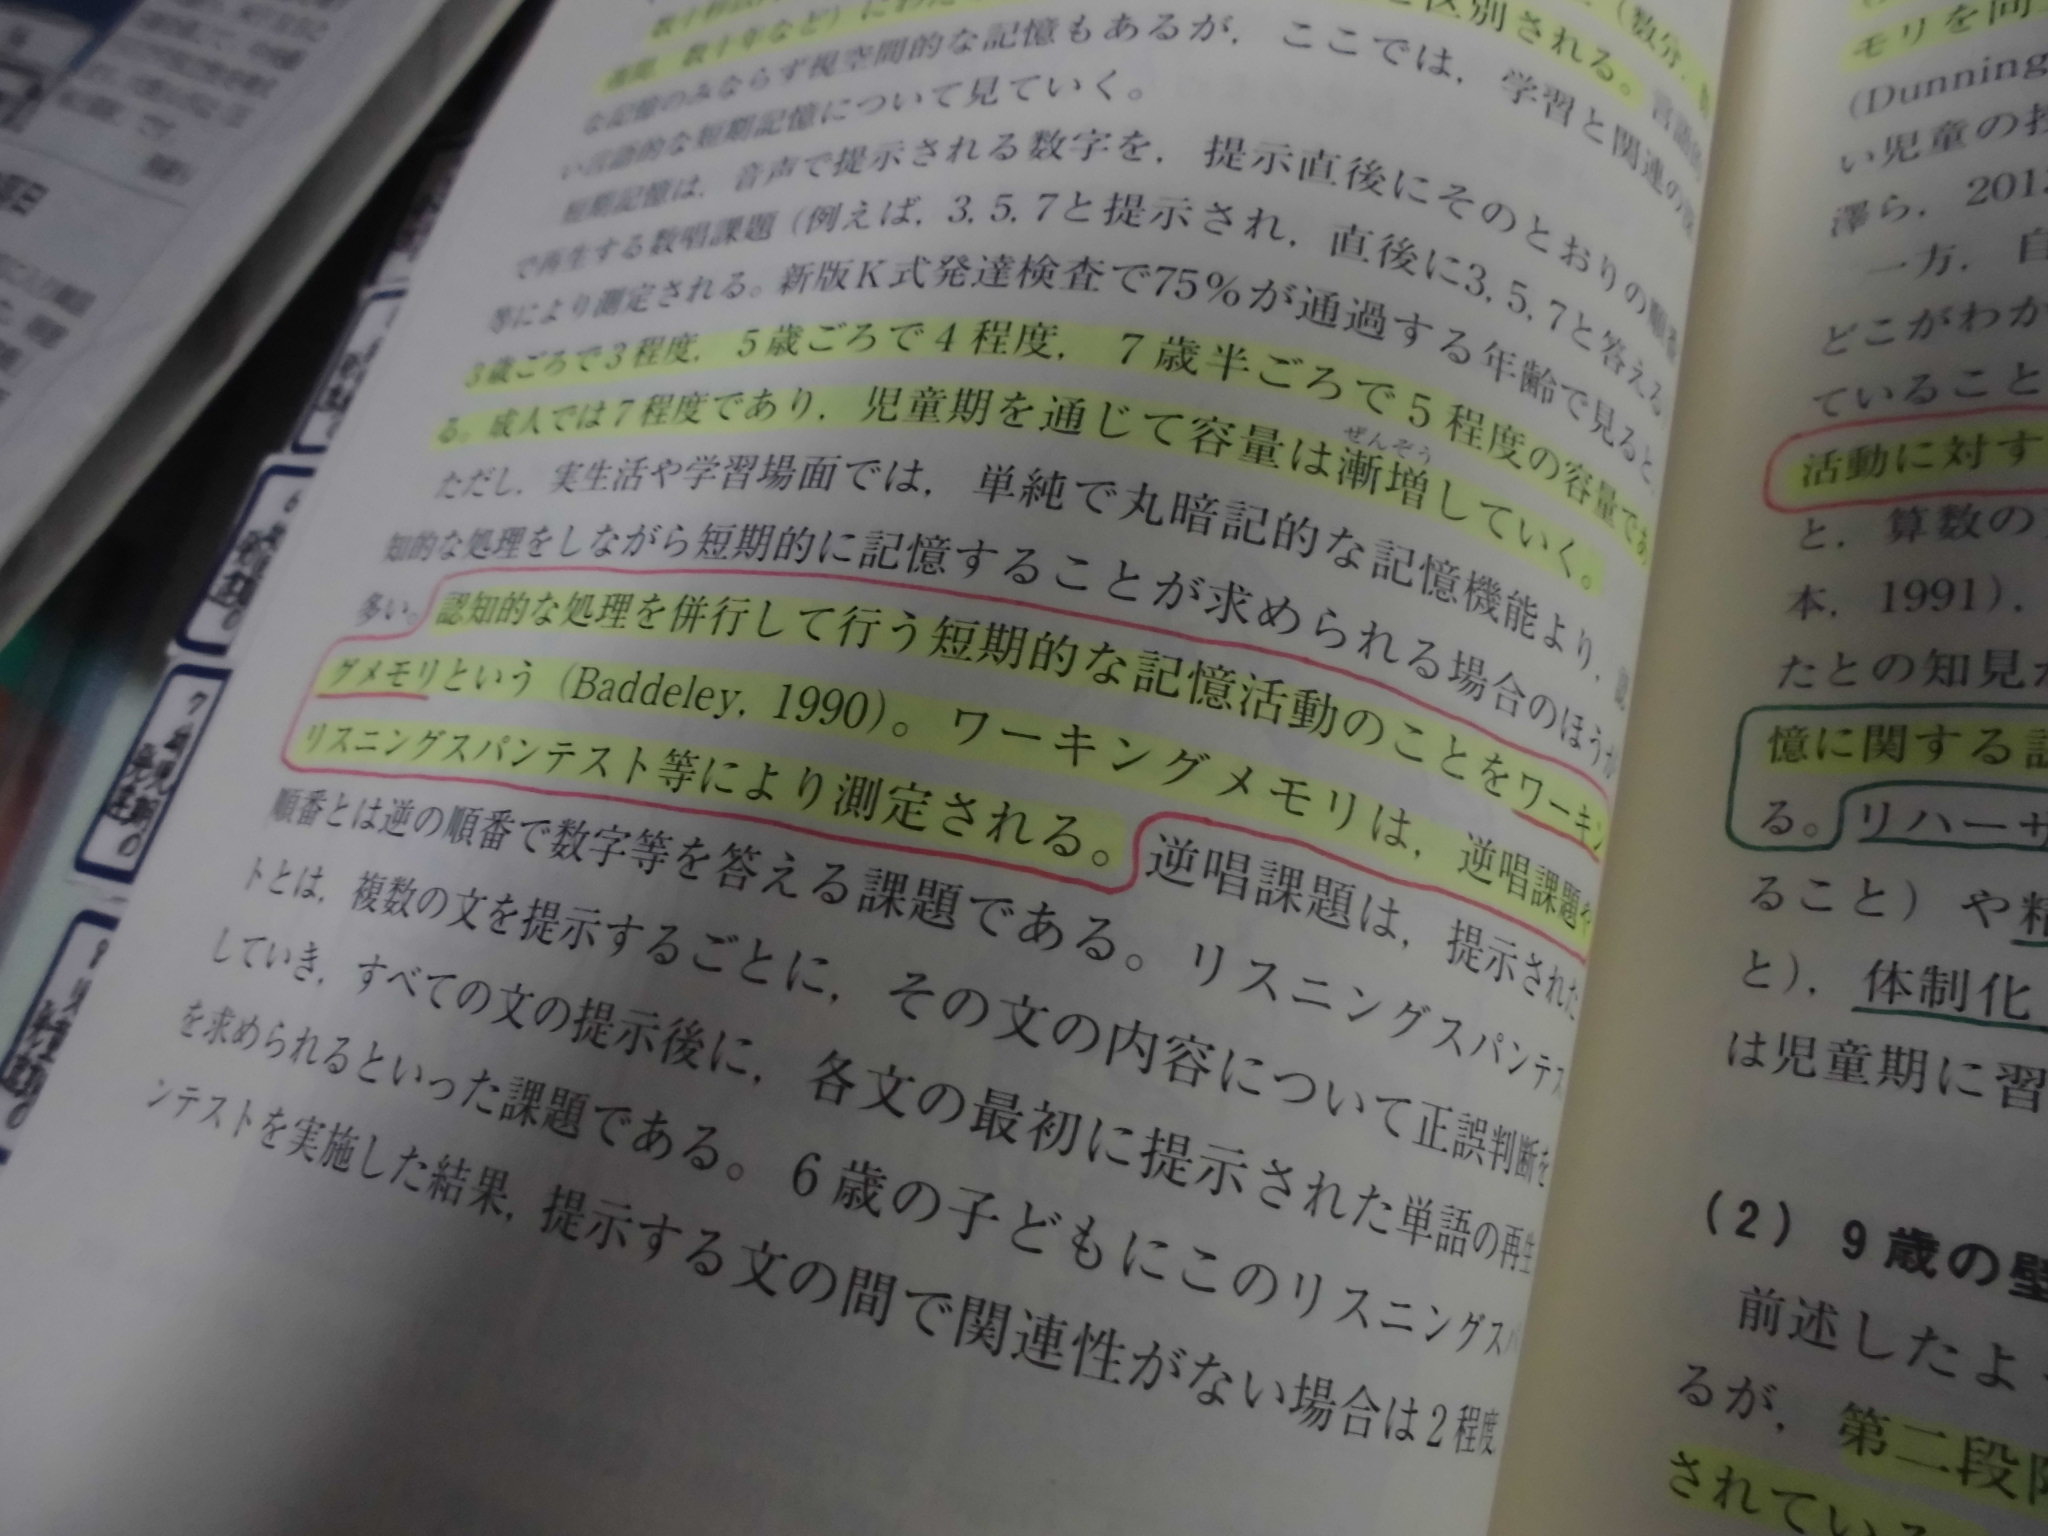 区別される。
な記憶のみならず視空間的な記憶もあるが，ここでは，学習と関連の
い言語的な短期記憶について見ていく。
短期記憶は，音声で提示される数字を，提示直後にそのとおりの順番
で再生する数唱課題（例えば，3, 5, 7と提示され，直後に3, 5, 7と答える
等により測定される。新版K式発達検査で75％が通過する年齢で見ると，
3歳ごろで3程度，5歳ごろで4程度，7歳半ごろで5程度の容量であ
る。成人では7程度であり，児童期を通じて容量は漸増していく。
ぜんぞう
ただし，実生活や学習場面では，単純で丸暗記的な記憶機能より，認
知的な処理をしながら短期的に記憶することが求められる場合のほうが
多い。認知的な処理を併行して行う短期的な記憶活動のことをワーキン
グメモリという（Baddeley, 1990）。ワーキングメモリは，逆唱課題や
リスニングスパンテスト等により測定される。逆唱課題は，提示された
順番とは逆の順番で数字等を答える課題である。リスニングスパンテス
トとは，複数の文を提示するごとに，その文の内容について正誤判断を
していき，すべての文の提示後に，各文の最初に提示された単語の再生
を求められるといった課題である。6歳の子どもにこのリスニングスパ
ンテストを実施した結果，提示する文の間で関連性がない場合は2程度
モリを向
(Dunning
い児童の
澤ら，201
一方，自
どこがわか
ていること
活動に対す
と，算数の
本，1991），
たとの知見
憶に関する
る。リハーサ
ること）や精
と），体制化
は児童期に習
（2） 9歳の壁
前述したよ
るが，第二段階
されている